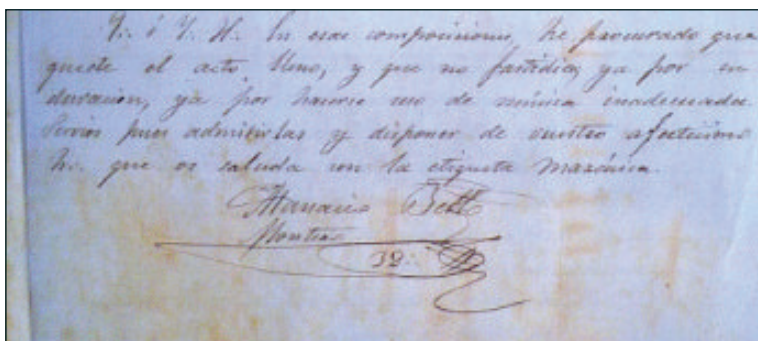 Y∴ é Y∴ H∴ En esas composiciones, he procurado que
quede el acto lleno, y que no fastidie, ya por su
duracion, ya por hacerse uso de música inadecuada.
Servios pues admitirlas y disponer de vuestro afectisimo
h∴ que os saluda con la etiqueta masónica.
Atanasio Bello
Montero
32∴